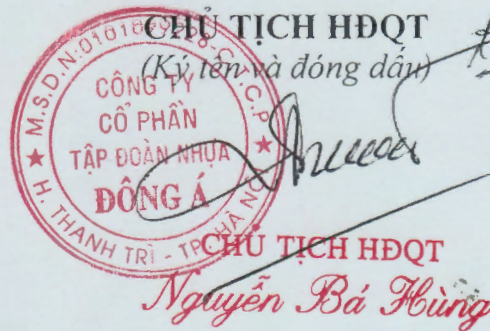 CHỦ TỊCH HĐQT
(Ký tên và đóng dấu)
CÔNG TY
CỔ PHẦN
TẬP ĐOÀN NHỰA
ĐÔNG Á
H. THANH TRÌ - TP. HÀ NỘI
CHỦ TỊCH HĐQT
Nguyễn Bá Hùng